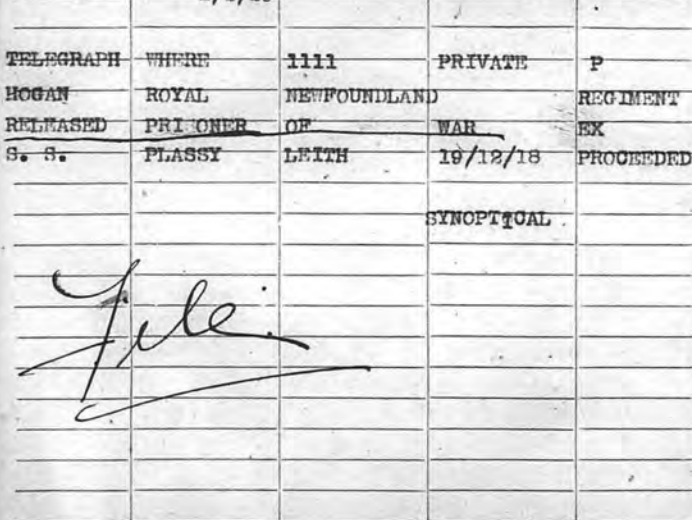 TELEGRAPH WHERE 1111 PRIVATE P
HOGAN ROYAL NEWFOUNDLAND REGIMENT
RELEASED PRISONER OF WAR EX
S. S. PLASSY LEITH 19/12/18 PROCEEDED
SYNOPTICAL
File